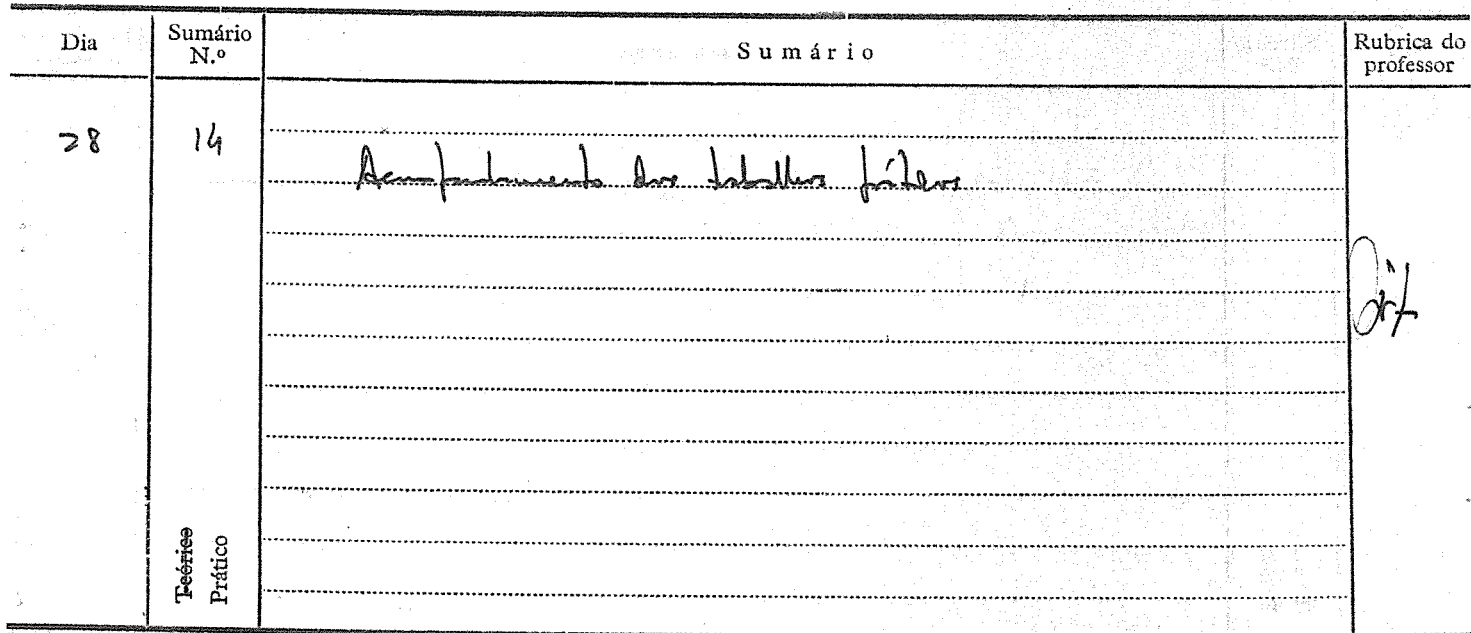 Dia
Sumário N.º
Sumário
Rubrica do professor
28
14
Acompanhamento dos trabalhos práticos
Teórico
Prático